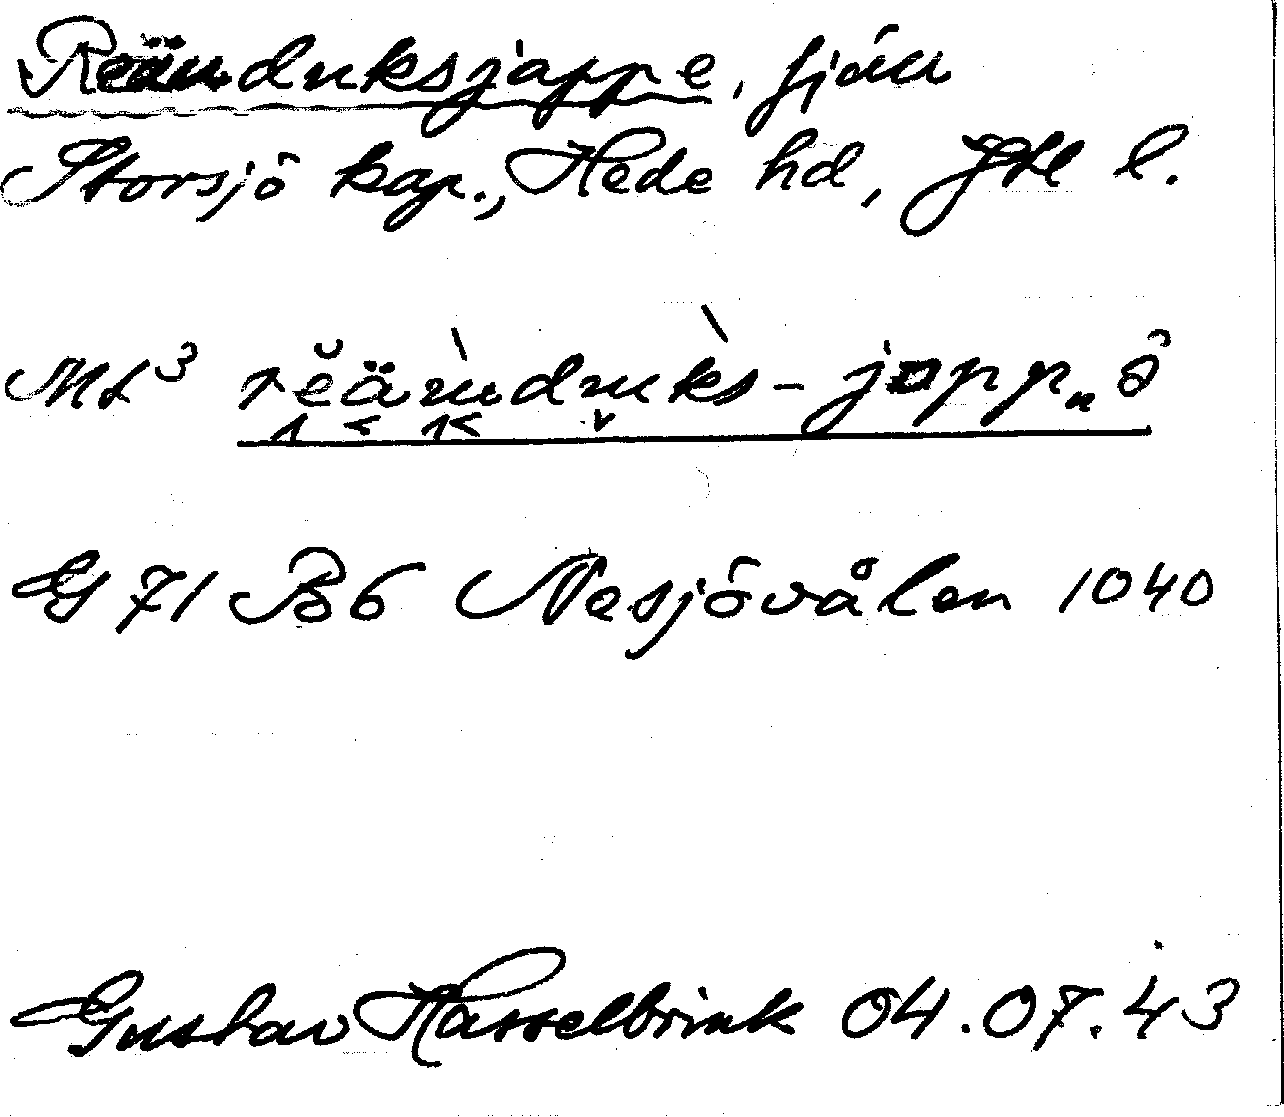 Reänduksjappe, fjäll
Storsjö kap., Hede hd, Jtl l.
Mt³ rĕänduks-japp„ô
G 71/B6 Nesjövålen 1040
Gustav Hasselbrink 04.07.43